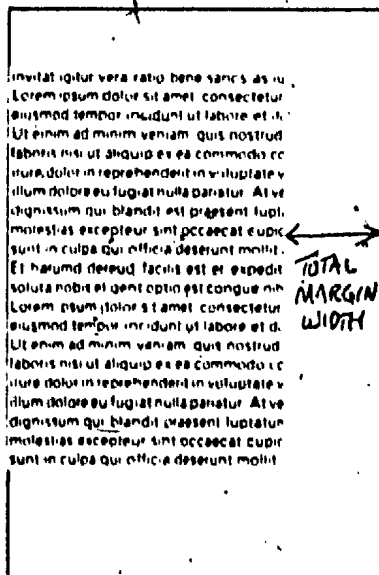 invitat igitur vera ratio bene sancs as iu
Lorem ipsum dolor sit amet consectetur
eiusmod tempor incidunt ut labore et d
Ut enim ad minim veniam quis nostrud
laboris nisi ut aliquip ex ea commodo cc
irure dolor in reprehenderit in voluptate v
illum dolore eu fugiat nulla pariatur At ve
dignissum qui blandit est praesent lupt
molestias excepteur sint occaecat cupic
sunt in culpa qui officia deserunt mollit
Et harumd dereud facilis est er expedit
soluta nobis el gent optio est congue nih
Lorem ipsum dolor s t amet consectetur
eiusmod tempor incidunt ut labore et d
Ut enim ad minim veniam quis nostrud
laboris nisi ut aliquip ex ea commodo cc
irure dolor in reprehenderit in voluptate v
illum dolore eu fugiat nulla pariatur At ve
dignissum qui blandit praesent luptatun
molestias excepteur sint occaecat cupic
sunt in culpa qui officia deserunt mollit
TOTAL
MARGIN
WIDTH